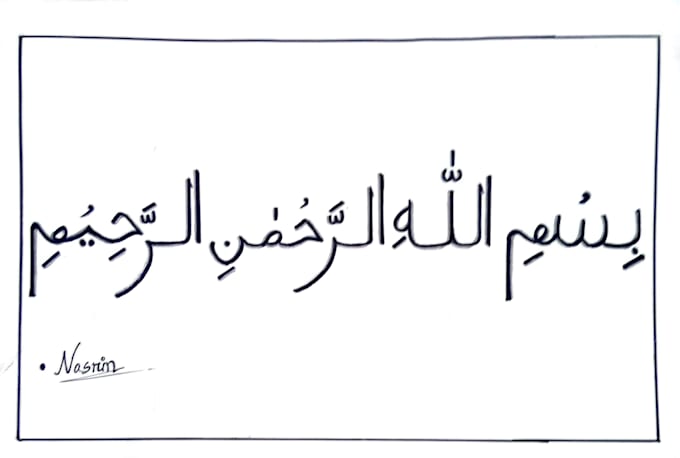 بِسْمِ اللّٰهِ الرَّحْمٰنِ الرَّحِيْمِ
Nasrin